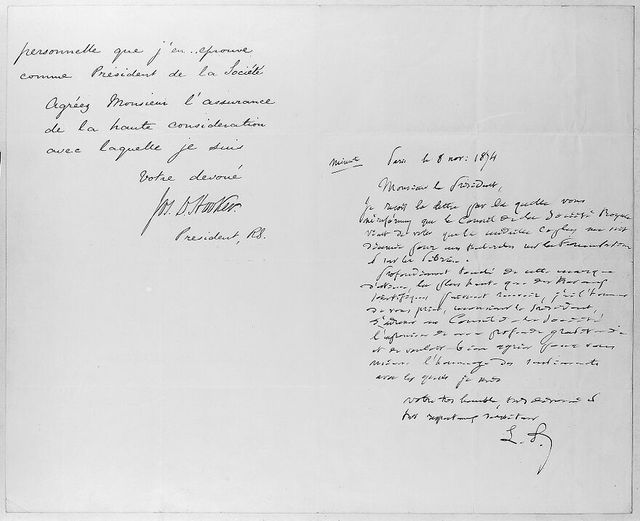 personnelle que j'en éprouve
comme Président de la Société
Agréez Monsieur l'assurance
de la haute consideration
avec laquelle je suis
Votre devoué
Jos. D. Hooker
President, R.S.
minute
Paris le 8 nov. 1874
Monsieur le Président,
je reçois la lettre par la quelle vous
m'informez que le Conseil de la Société Royale
vient de voter que la médaille Copley me soit
donnée pour mes recherches sur les Fermentations
et sur les
Profondément touché de cette marque
d'estime, la plus haute que des travaux
scientifiques puissent recevoir, j'ai l'honneur
de vous prier, monsieur le Président,
au Conseil de la Société
l'expression de ma profonde gratitude
et de vouloir bien agréer pour vous
même l'hommage des sentiments
avec les quels je suis
votre très humble, très dévoué et
très
L. P.